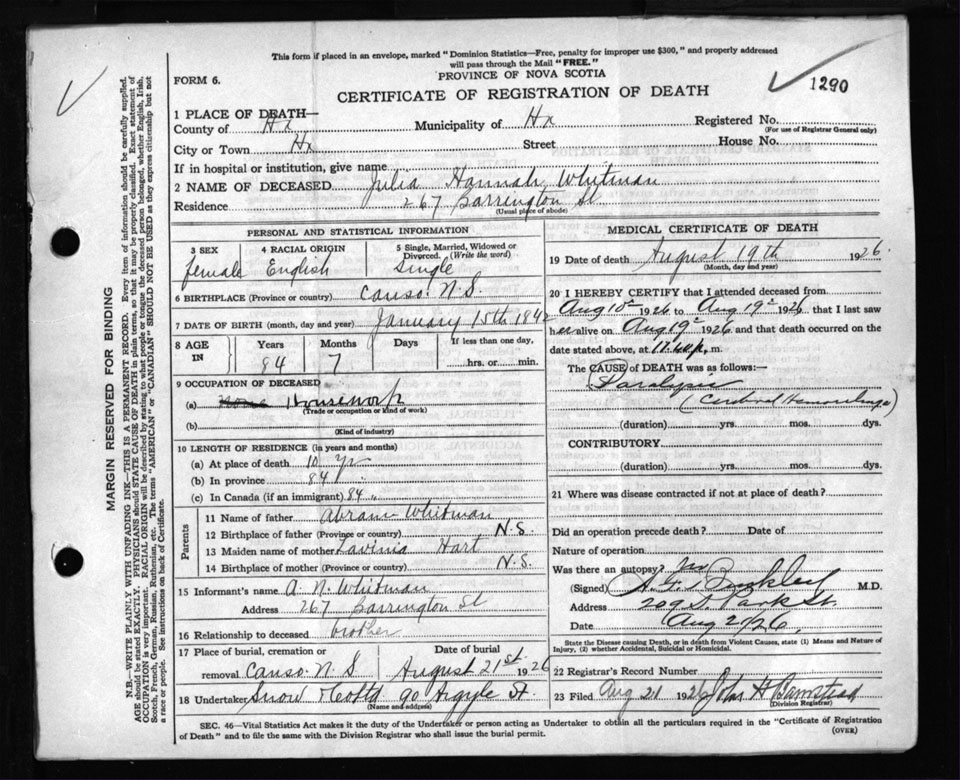 This form if placed in an envelope, marked "Dominion Statistics—Free, penalty for improper use $300," and properly addressed
will pass through the Mail "FREE."
PROVINCE OF NOVA SCOTIA
FORM 6.
1290
CERTIFICATE OF REGISTRATION OF DEATH
1 PLACE OF DEATH—
County of Hx Municipality of Hx Registered No.
(For use of Registrar General only)
City or Town Hx Street House No.
If in hospital or institution, give name
2 NAME OF DECEASED Julia Hannah Whitman
Residence 267 Barrington St
(Usual place of abode)
PERSONAL AND STATISTICAL INFORMATION
3 SEX 4 RACIAL ORIGIN 5 Single, Married, Widowed or
Divorced. (Write the word)
female English Single
6 BIRTHPLACE (Province or country) Canso. N.S.
7 DATE OF BIRTH (month, day and year) January 15th 1842
8 AGE IN Years Months Days If less than one day,
84 7 hrs. or min.
9 OCCUPATION OF DECEASED
(a) None Housework
(Trade or occupation or kind of work)
(b)
(Kind of industry)
10 LENGTH OF RESIDENCE (in years and months)
(a) At place of death 10 yr
(b) In province 84 "
(c) In Canada (if an immigrant) 84 "
Parents
11 Name of father Abram Whitman
12 Birthplace of father (Province or country) N.S.
13 Maiden name of mother Lavinia Hart
14 Birthplace of mother (Province or country) N.S.
15 Informant's name A. N. Whitman
Address 267 Barrington St
16 Relationship to deceased brother
17 Place of burial, cremation or Date of burial
removal Canso N S August 21st 1926
18 Undertaker Snow & Co Ltd 90 Argyle St.
(Name and address)
MEDICAL CERTIFICATE OF DEATH
19 Date of death August 19th 1926
(Month, day and year)
20 I HEREBY CERTIFY that I attended deceased from
Aug 10 1926 to Aug 19 1926, that I last saw
her alive on Aug 19 1926 and that death occurred on
date stated above, at 11.40 p. m.
The CAUSE of DEATH was as follows:—
Paralysis
(Cerebral Hemorrhage)
(duration) yrs. mos. dys.
CONTRIBUTORY
(duration) yrs. mos. dys.
21 Where was disease contracted if not at place of death?
Did an operation precede death? Date of
Nature of operation
Was there an autopsy? no
(Signed) M.D.
Address Park St.
Date Aug 21/26
State the Disease causing Death, or in death from Violent Causes, state (1) Means and Nature of
Injury, (2) whether Accidental, Suicidal or Homicidal.
22 Registrar's Record Number
23 Filed Aug 21 1926 John H Barnstead
(Division Registrar)
SEC. 46—Vital Statistics Act makes it the duty of the Undertaker or person acting as Undertaker to obtain all the particulars required in the "Certificate of Registration
of Death" and to file the same with the Division Registrar who shall issue the burial permit.
(OVER)
MARGIN RESERVED FOR BINDING
N.B.—WRITE PLAINLY WITH UNFADING INK—THIS IS A PERMANENT RECORD. Every item of information should be carefully supplied.
AGE should be stated EXACTLY. PHYSICIANS should STATE CAUSE OF DEATH in plain terms, so that it may be properly classified. Exact statement of
OCCUPATION is very important. RACIAL ORIGIN will be described by stating to what people or tongue the deceased person belonged, whether English, Irish,
Scotch, French, German, Russian, Ruthenian, etc. The terms "AMERICAN" or "CANADIAN" SHOULD NOT BE USED as they express citizenship but not
a race or people. See instructions on back of Certificate.